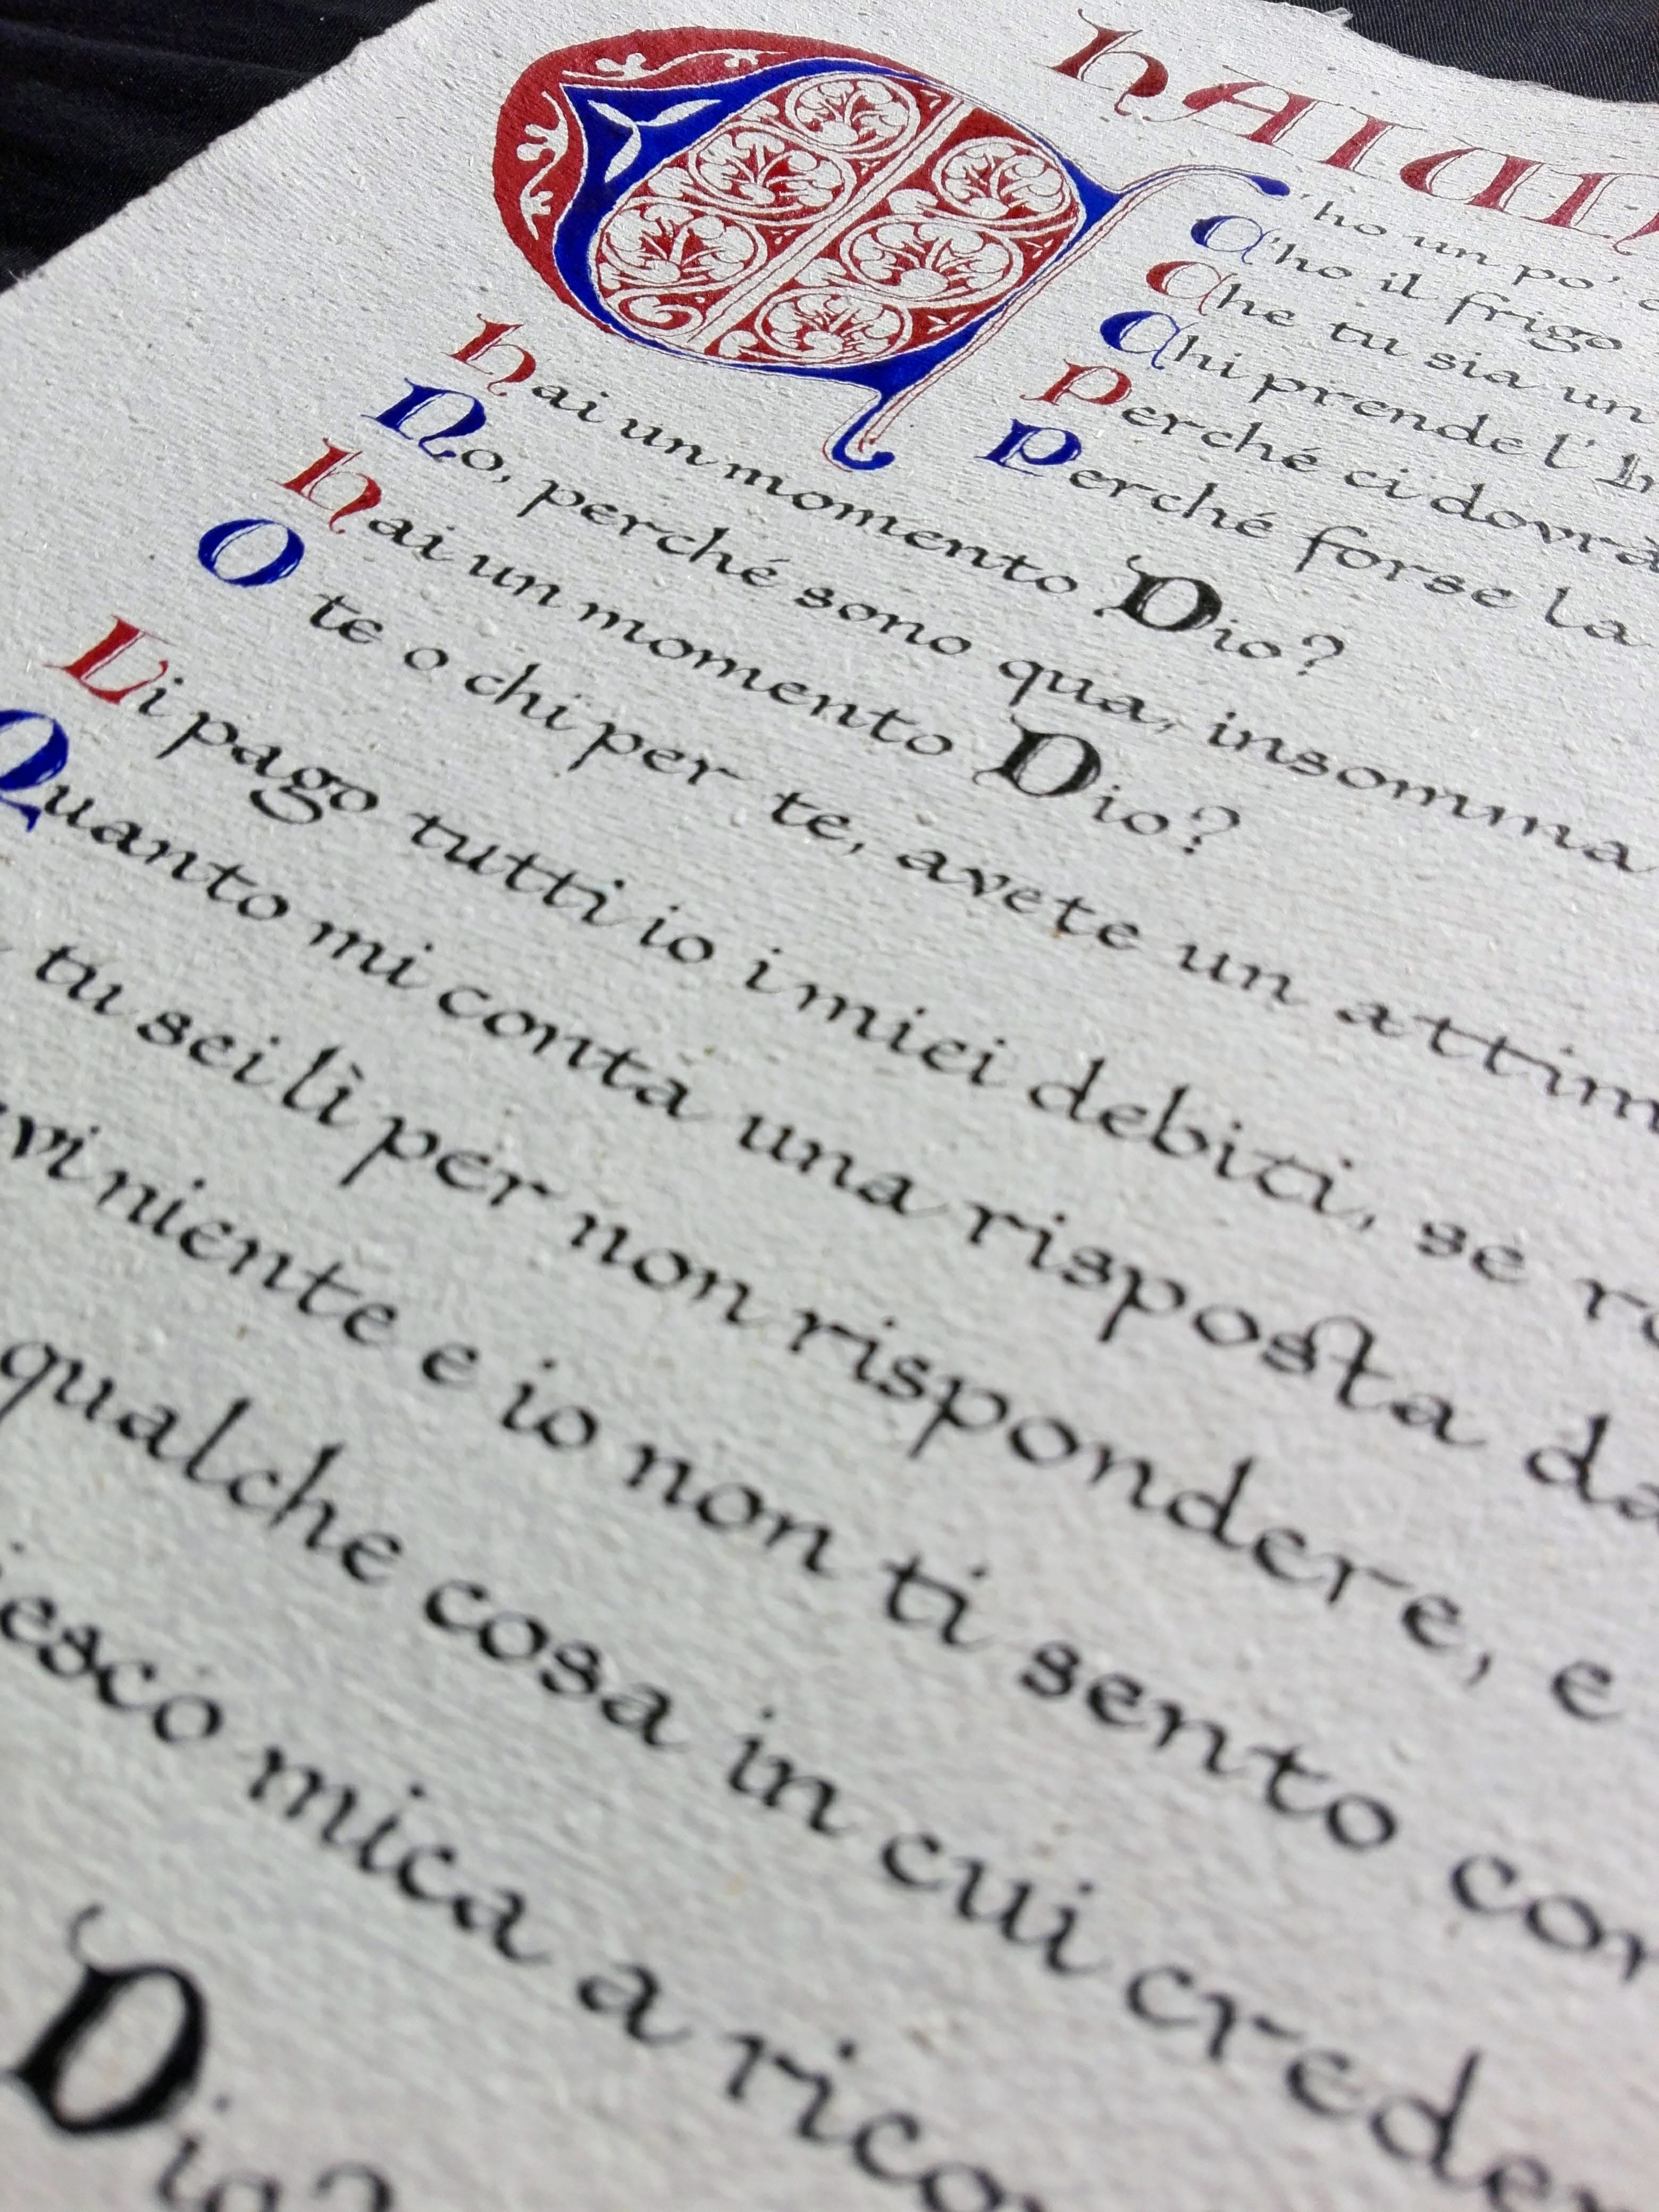 HAI UN
C'ho un po'
C'ho il frigo
Che tu sia un
Chi prende l'In
Perché ci dovrà
Perché forse la
Hai un momento Dio?
No, perché sono qua, insomma
Hai un momento Dio?
O te o chi per te, avete un attim
Li pago tutti io i miei debiti, se ro
Quanto mi conta una risposta da
tu sei lì per non rispondere, e
vi niente e io non ti sento con
qualche cosa in cui creder
iesco mica a ricor
Dio?